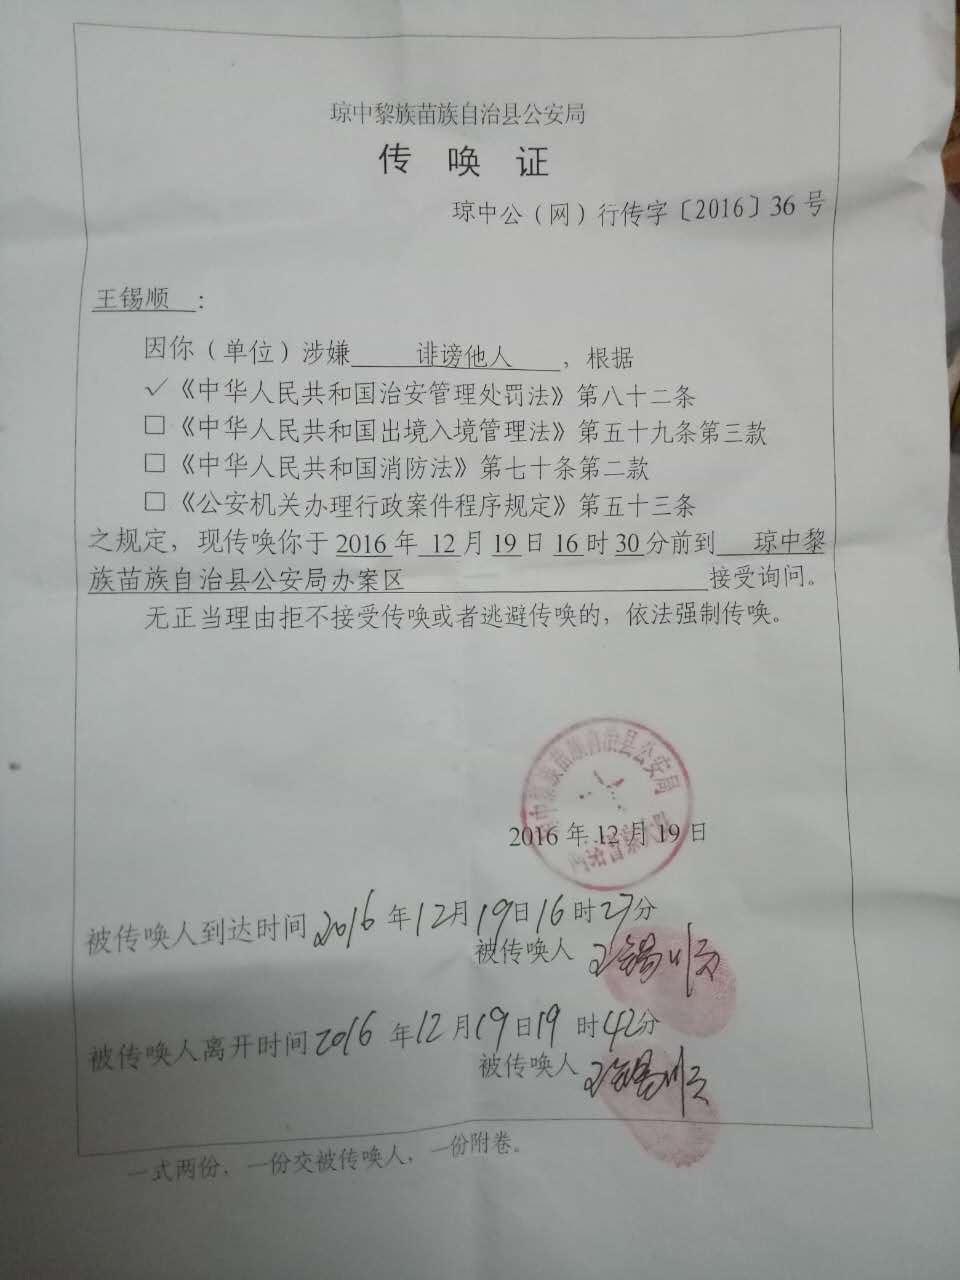 琼中黎族苗族自治县公安局
传唤证
琼中公（网）行传字〔2016〕36号
王锡顺：
因你（单位）涉嫌 诽谤他人 ，根据
✓《中华人民共和国治安管理处罚法》第八十二条
□《中华人民共和国出境入境管理法》第五十九条第三款
□《中华人民共和国消防法》第七十条第二款
□《公安机关办理行政案件程序规定》第五十三条
之规定，现传唤你于2016年12月19日16时30分前到 琼中黎
族苗族自治县公安局办案区 接受询问。
无正当理由拒不接受传唤或者逃避传唤的，依法强制传唤。
琼中黎族苗族自治县公安局
2016年12月19日
被传唤人到达时间2016年12月19日16时27分
被传唤人 王锡顺
被传唤人离开时间2016年12月19日19时42分
被传唤人 王锡顺
一式两份，一份交被传唤人，一份附卷。